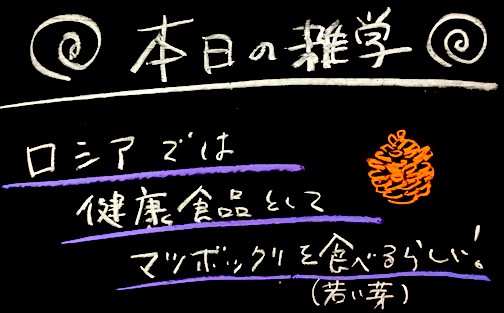 本日の雑学
ロシアでは
健康食品として
マツボックリを食べるらしい!
(若い芽)